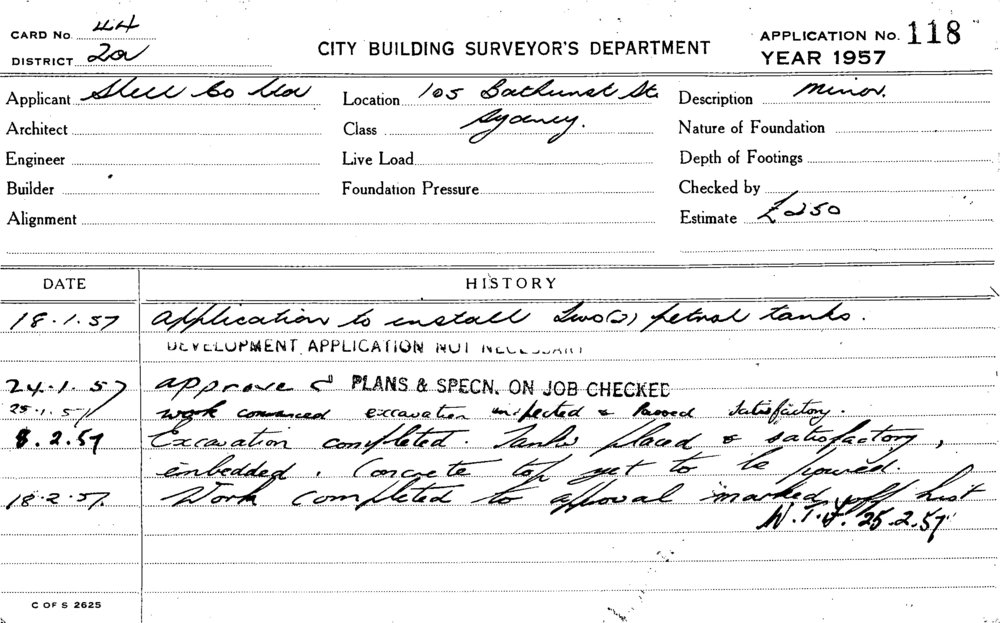 CARD No. 44
DISTRICT 2a
CITY BUILDING SURVEYOR'S DEPARTMENT
APPLICATION No. 118
YEAR 1957
Applicant Shell Co Ltd
Location 105 Bathurst St
Description Minor.
Architect
Class Sydney.
Nature of Foundation
Engineer
Live Load
Depth of Footings
Builder
Foundation Pressure
Checked by
Alignment
Estimate £250
DATE HISTORY
18.1.57 Application to install Two(2) petrol tanks.
DEVELOPMENT APPLICATION NOT NECESSARY
24.1.57 approved PLANS & SPECN. ON JOB CHECKED
25.1.57 work commenced excavation inspected & passed satisfactory.
8.2.57 Excavation completed. Tanks placed & satisfactory,
embedded. Concrete top yet to be poured.
18.2.57. Work completed to approval marked off list
25.2.57
C OF S 2625